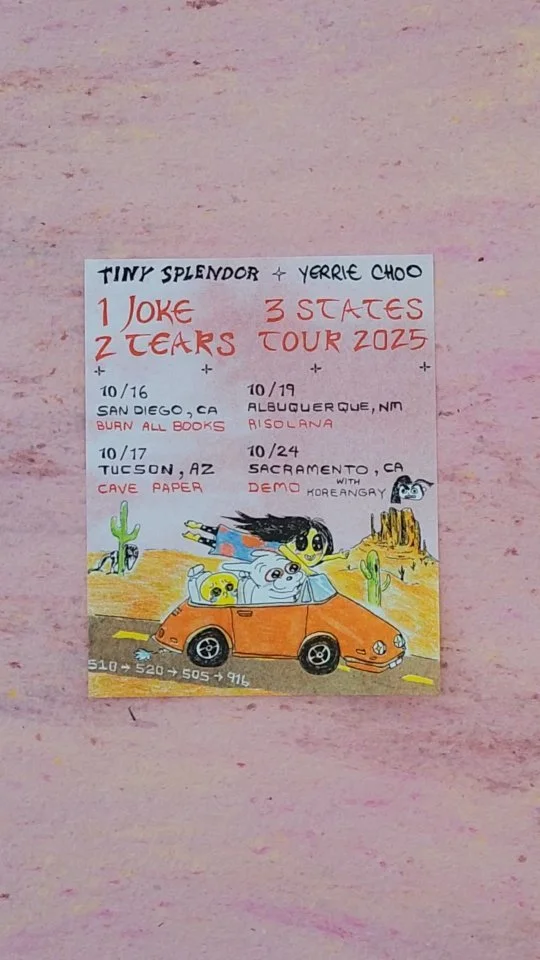 TINY SPLENDOR + YERRIE CHOO
1 JOKE 3 STATES
2 TEARS TOUR 2025
10/16
SAN DIEGO, CA
BURN ALL BOOKS
10/19
ALBUQUERQUE, NM
RISOLANA
10/17
TUCSON, AZ
CAVE PAPER
10/24
SACRAMENTO, CA
DEMO WITH KOREANGRY
510 → 520 → 505 → 916